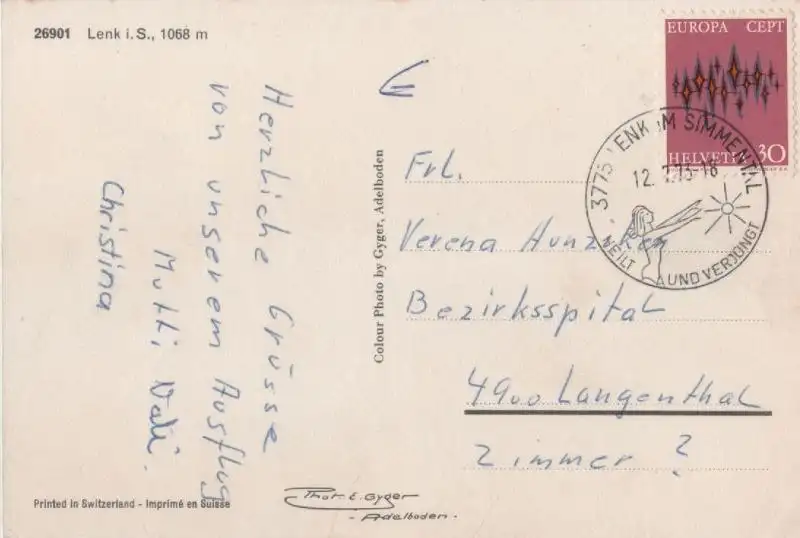 26901 Lenk i. S., 1068 m
Herzliche Grüsse
von unserem Ausflug
Mutti, Vati
Christina
Colour Photo by Gyger, Adelboden
EUROPA CEPT
HELVETIA 30
3775 LENK IM SIMMENTAL
12. 7.73-18
HEILT UND VERJÜNGT
Frl.
Verena Hunziker
Bezirksspital
4900 Langenthal
Zimmer ?
Printed in Switzerland - Imprimé en Suisse
Phot. E. Gyger
- Adelboden -